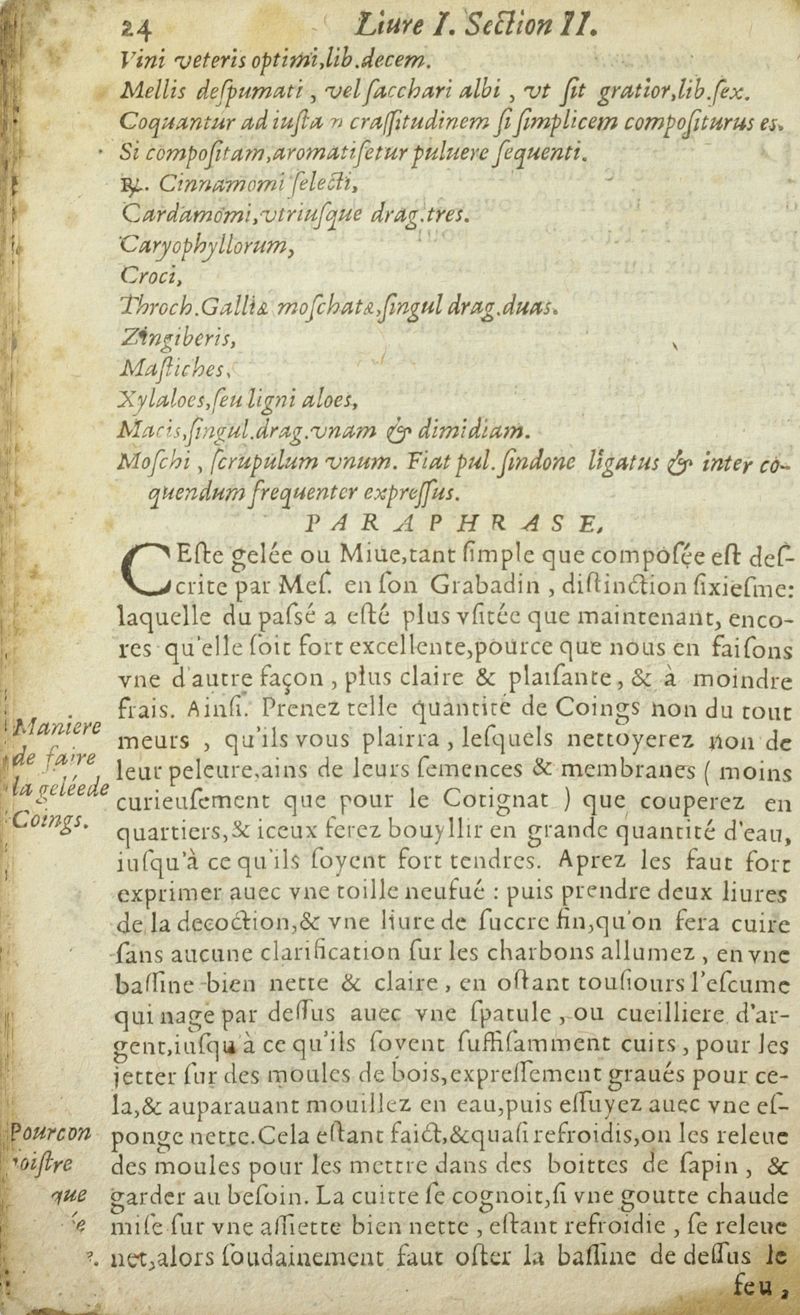 24 Liure I. Section II.
Vini veteris optimi,lib.decem.
Mellis deſpumati , vel ſacchari albi , vt ſit gratior,lib.ſex.
Coquantur ad iuſtā craſſitudinem ſi ſimplicem compoſiturus es.
Si compoſitam,aromatiſetur puluere ſequenti.
℞. Cinnamomi ſelecti,
Cardamomi,vtriuſque drag.tres.
Caryophyllorum,
Croci,
Throch.Galliæ moſchatæ,ſingul drag.duas.
Zingiberis,
Maſtiches,
Xylaloes,ſeu ligni aloes,
Macis,ſingul.drag.vnam & dimidiam.
Moſchi , ſcrupulum vnum. Fiat pul.ſindone ligatus & inter co-
quendum frequenter expreſſus.
PARAPHRASE,
CEſte gelée ou Miue,tant ſimple que compoſée eſt deſ-
crite par Meſ. en ſon Grabadin , diſtinction ſixieſme:
laquelle du paſsé a eſté plus vſitée que maintenant, enco-
res qu'elle ſoit fort excellente,pource que nous en faiſons
vne d'autre façon , plus claire & plaiſante, & à moindre
frais. Ainſi. Prenez telle quantité de Coings non du tout
Maniere
de faire
la gelée de
Coings.
meurs , qu'ils vous plairra , leſquels nettoyerez non de
leur peleure,ains de leurs ſemences & membranes ( moins
curieuſement que pour le Cotignat ) que couperez en
quartiers,& iceux ferez bouyllir en grande quantité d'eau,
iuſqu'à ce qu'ils ſoyent fort tendres. Aprez les faut fort
exprimer auec vne toille neufué : puis prendre deux liures
de la decoction,& vne liure de ſuccre fin,qu'on fera cuire
ſans aucune clarification ſur les charbons allumez , en vne
baſſine bien nette & claire , en oſtant touſiours l'eſcume
qui nage par deſſus auec vne ſpatule , ou cueilliere d'ar-
gent,iuſqu'à ce qu'ils ſoyent ſuffiſamment cuits , pour les
jetter ſur des moules de bois,expreſſement graués pour ce-
la,& auparauant mouillez en eau,puis eſſuyez auec vne eſ-
ponge nette.Cela eſtant faict,&quaſi refroidis,on les releue
des moules pour les mettre dans des boittes de ſapin , &
garder au beſoin. La cuitte ſe cognoit,ſi vne goutte chaude
Pourcon
oiſtre
que
miſe ſur vne aſſiette bien nette , eſtant refroidie , ſe releue
net,alors ſoudainement faut oſter la baſſine de deſſus le
feu ,